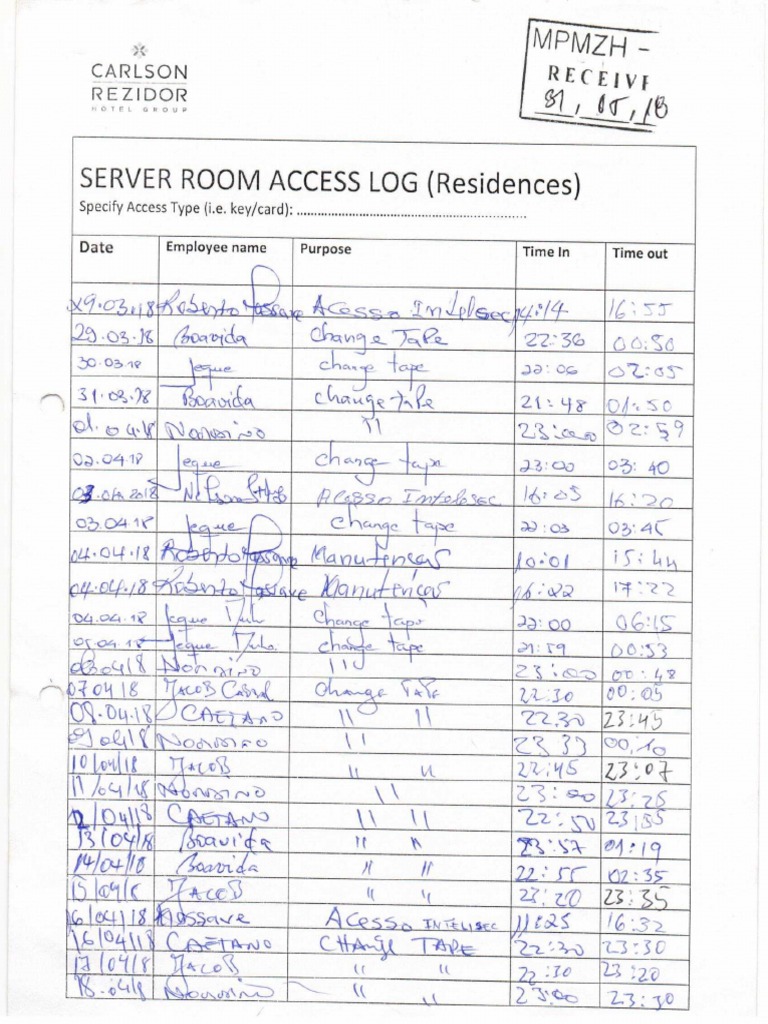 CARLSON
REZIDOR
HOTEL GROUP
MPMZH -
RECEIVE
31, 05, 18
SERVER ROOM ACCESS LOG (Residences)
Specify Access Type (i.e. key/card): ..............................
Date Employee name Purpose Time In Time out
29.03.18 Roberto Massave Acesso Intelsec 14:14 16:55
29.03.18 Boavida Change Tape 22:36 00:50
30.03.18 Jeque change tape 22:06 02:05
31.03.18 Boavida change taPe 21:48 01:50
01.04.18 Norosino 11 23:00 02:59
02.04.18 Jeque change tape 23:00 03:40
03.04.2018 Nelson Acesso Intelesec 16:05 16:20
03.04.18 Jeque change tape 22:03 03:45
04.04.18 Roberto Massave Manutençao 10:01 15:44
04.04.18 Roberto Massave Manutençao 16:22 17:22
04.04.18 Jeque change tape 22:00 06:15
05.04.18 Jeque change tape 21:59 00:53
Norosino 11 23:00 00:48
07 04/18 JACOB change TAPE 22:30 00:05
08.04.18 CAETANO 11 11 22.30 23:45
09/04/18 Norosino 11 23 33 00:10
10/04/18 JACOB 11 11 22:45 23:07
11/04/18 Norosino 11 23:00 23:25
12/04/18 CAETANO 11 11 22:50 23:55
13/04/18 Boavida 11 11 23:57 01:19
14/04/18 Boavida 11 11 22:55 02:35
15/04/18 JACOB 11 11 23:20 23:35
16/04/18 Massave Acesso INTELISEC 11:25 16:32
16/04/18 CAETANO CHANGE TAPE 22:30 23:30
17/04/18 JACOB 11 11 22:30 23:20
18.04/8 Norosino 11 11 23:00 23:30